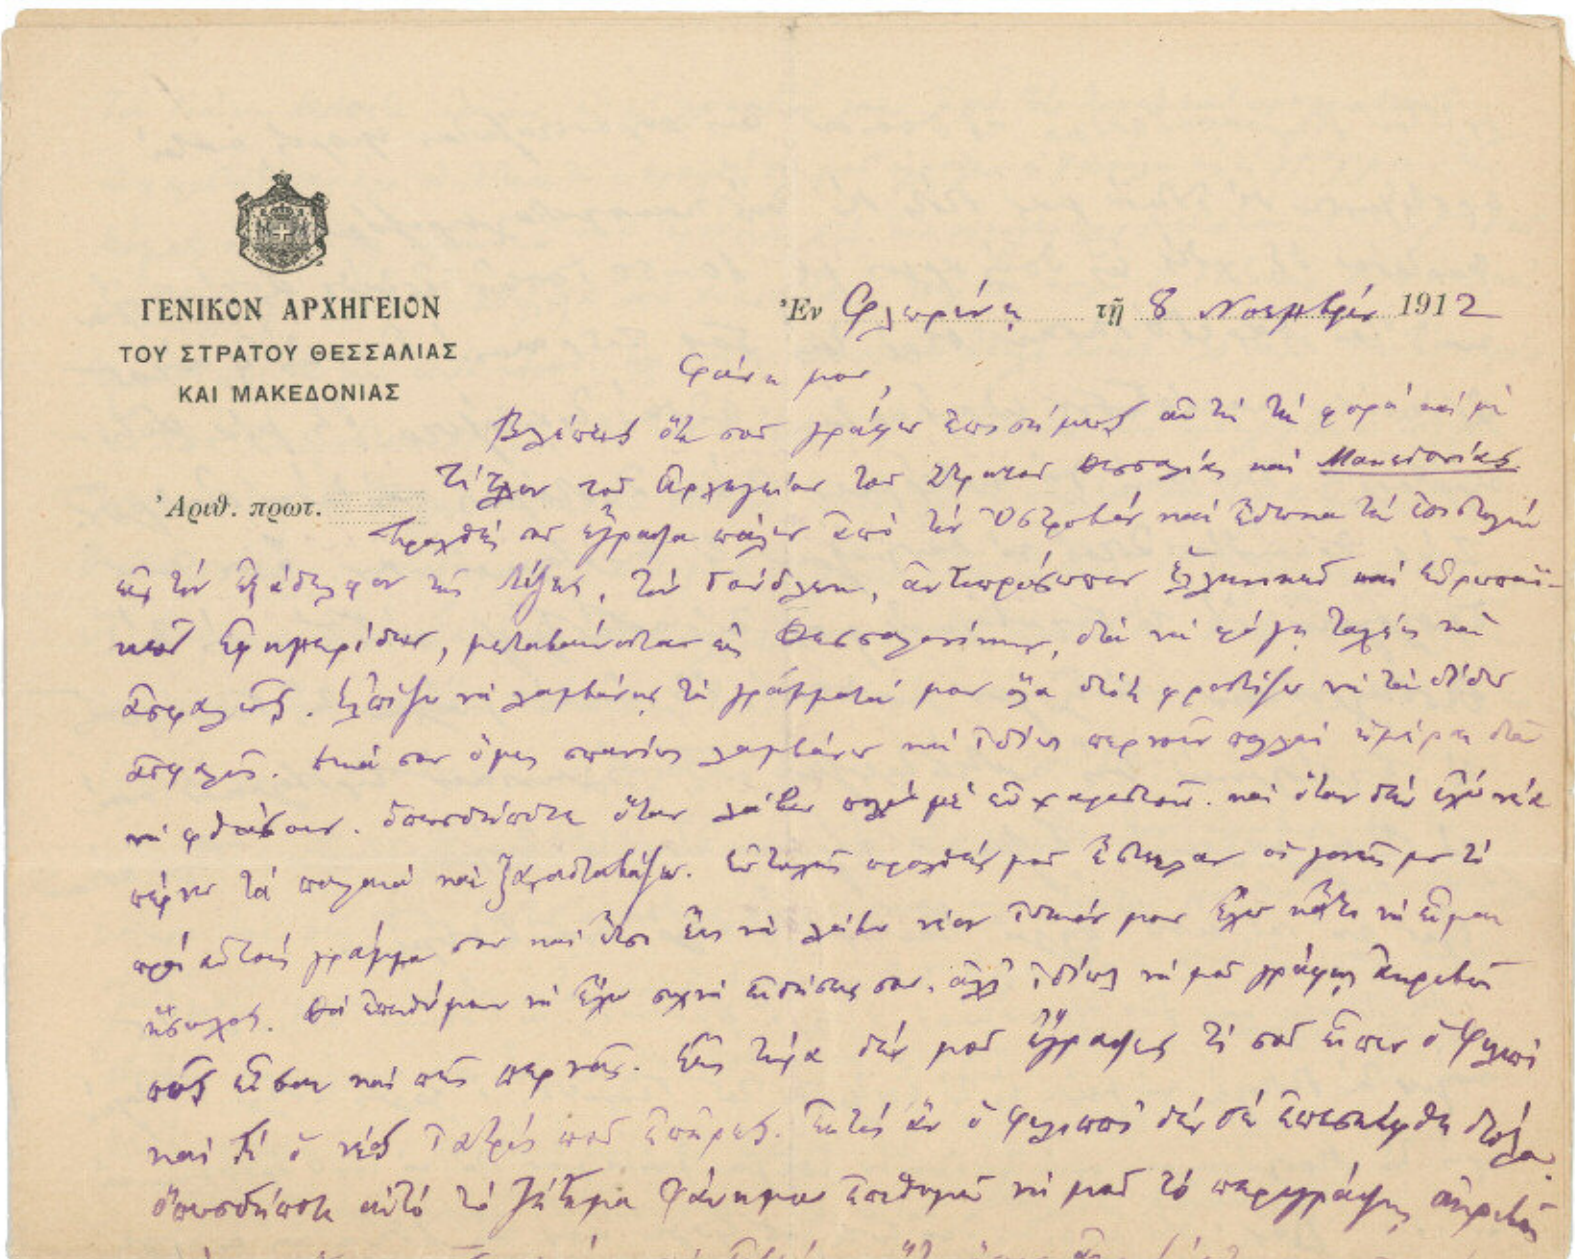 ΓΕΝΙΚΟΝ ΑΡΧΗΓΕΙΟΝ
ΤΟΥ ΣΤΡΑΤΟΥ ΘΕΣΣΑΛΙΑΣ
ΚΑΙ ΜΑΚΕΔΟΝΙΑΣ
Ἐν Φλωρίνῃ τῇ 8 Νοεμβρίου 1912
Ἀριθ. πρωτ.
Φάνη μου,
Βλέπεις ὅτι σοῦ γράφω ἐπισήμως αὐτὴ τὴ φορὰ καὶ μὲ
τίτλον τοῦ Ἀρχηγείου τοῦ Στρατοῦ Θεσσαλίας καὶ Μακεδονίας.
Προχθὲς σοῦ ἔγραψα πάλιν ἀπὸ τὸ Ὄστροβον καὶ ἔδωκα τὴν ἐπιστολὴν
εἰς τὸν ἐξάδελφον τῆς, τὸν, ἀντιπρόσωπον ἑλληνικῶν καὶ εὐρωπαϊ-
κῶν ἐφημερίδων, μεταβαίνοντα εἰς Θεσσαλονίκην, διὰ νὰ φύγῃ ταχέως καὶ
ἀσφαλῶς. Ἐλπίζω νὰ λαμβάνῃς τὰ γράμματά μου ὅλα διότι φροντίζω νὰ τὰ δίδω
ἀσφαλῶς. σου ὅμως σπανίως λαμβάνω καὶ ἰδίως περνοῦν πολλαὶ ἡμέραι διὰ
νὰ φθάσουν. Ὁπωσδήποτε ὅταν λάβω πολὺ μὲ εὐχαριστοῦν. καὶ ὅταν δὲν ἔχω νέα
πέρνω τὰ παλαιὰ καὶ ξαναδιαβάζω. Εὐτυχῶς προχθὲς μοῦ ἔστειλαν οἱ γονεῖς μου τὸ
πρὸς αὐτοὺς γράμμα σου καὶ ἔτσι ἕως νὰ λάβω νέον ἰδικόν μου ἔχω κάτι νὰ εἶμαι
ἥσυχος. Θὰ ἐπεθύμουν νὰ ἔχω συχνὰ εἰδήσεις σου, ἀλλ' ἰδίως νὰ μοῦ γράφῃς ἀκριβῶς
πῶς εἶσαι καὶ πῶς περνᾷς. Ἕως τώρα δὲν μοῦ ἔγραψες τί σοῦ εἶπεν ὁ
καὶ τί ὁ νέος ἰατρὸς ποῦ ἐπῆρες. ἂν ὁ δὲν σὲ ἐπεσκέφθη διόλου.
Ὁπωσδήποτε αὐτὸ τὸ ζήτημα Φάνη μου ἐπιθυμῶ νὰ μοῦ τὸ περιγράψῃς ἀκριβῶς